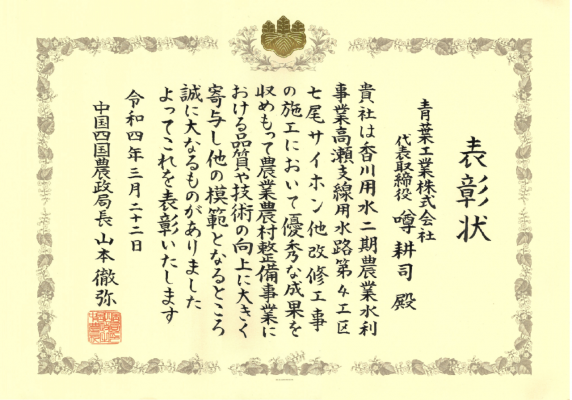 表彰状
青葉工業株式会社
代表取締役 噂 耕司 殿
貴社は香川用水二期農業水利
事業高瀬支線用水路第4工区
七尾サイホン他改修工事
の施工において優秀な成果を
収めもって農業農村整備事業に
おける品質や技術の向上に大きく
寄与し他の模範となるところ
誠に大なるものがありました
よってこれを表彰いたします
令和四年三月二十二日
中国四国農政局長 山本 徹弥